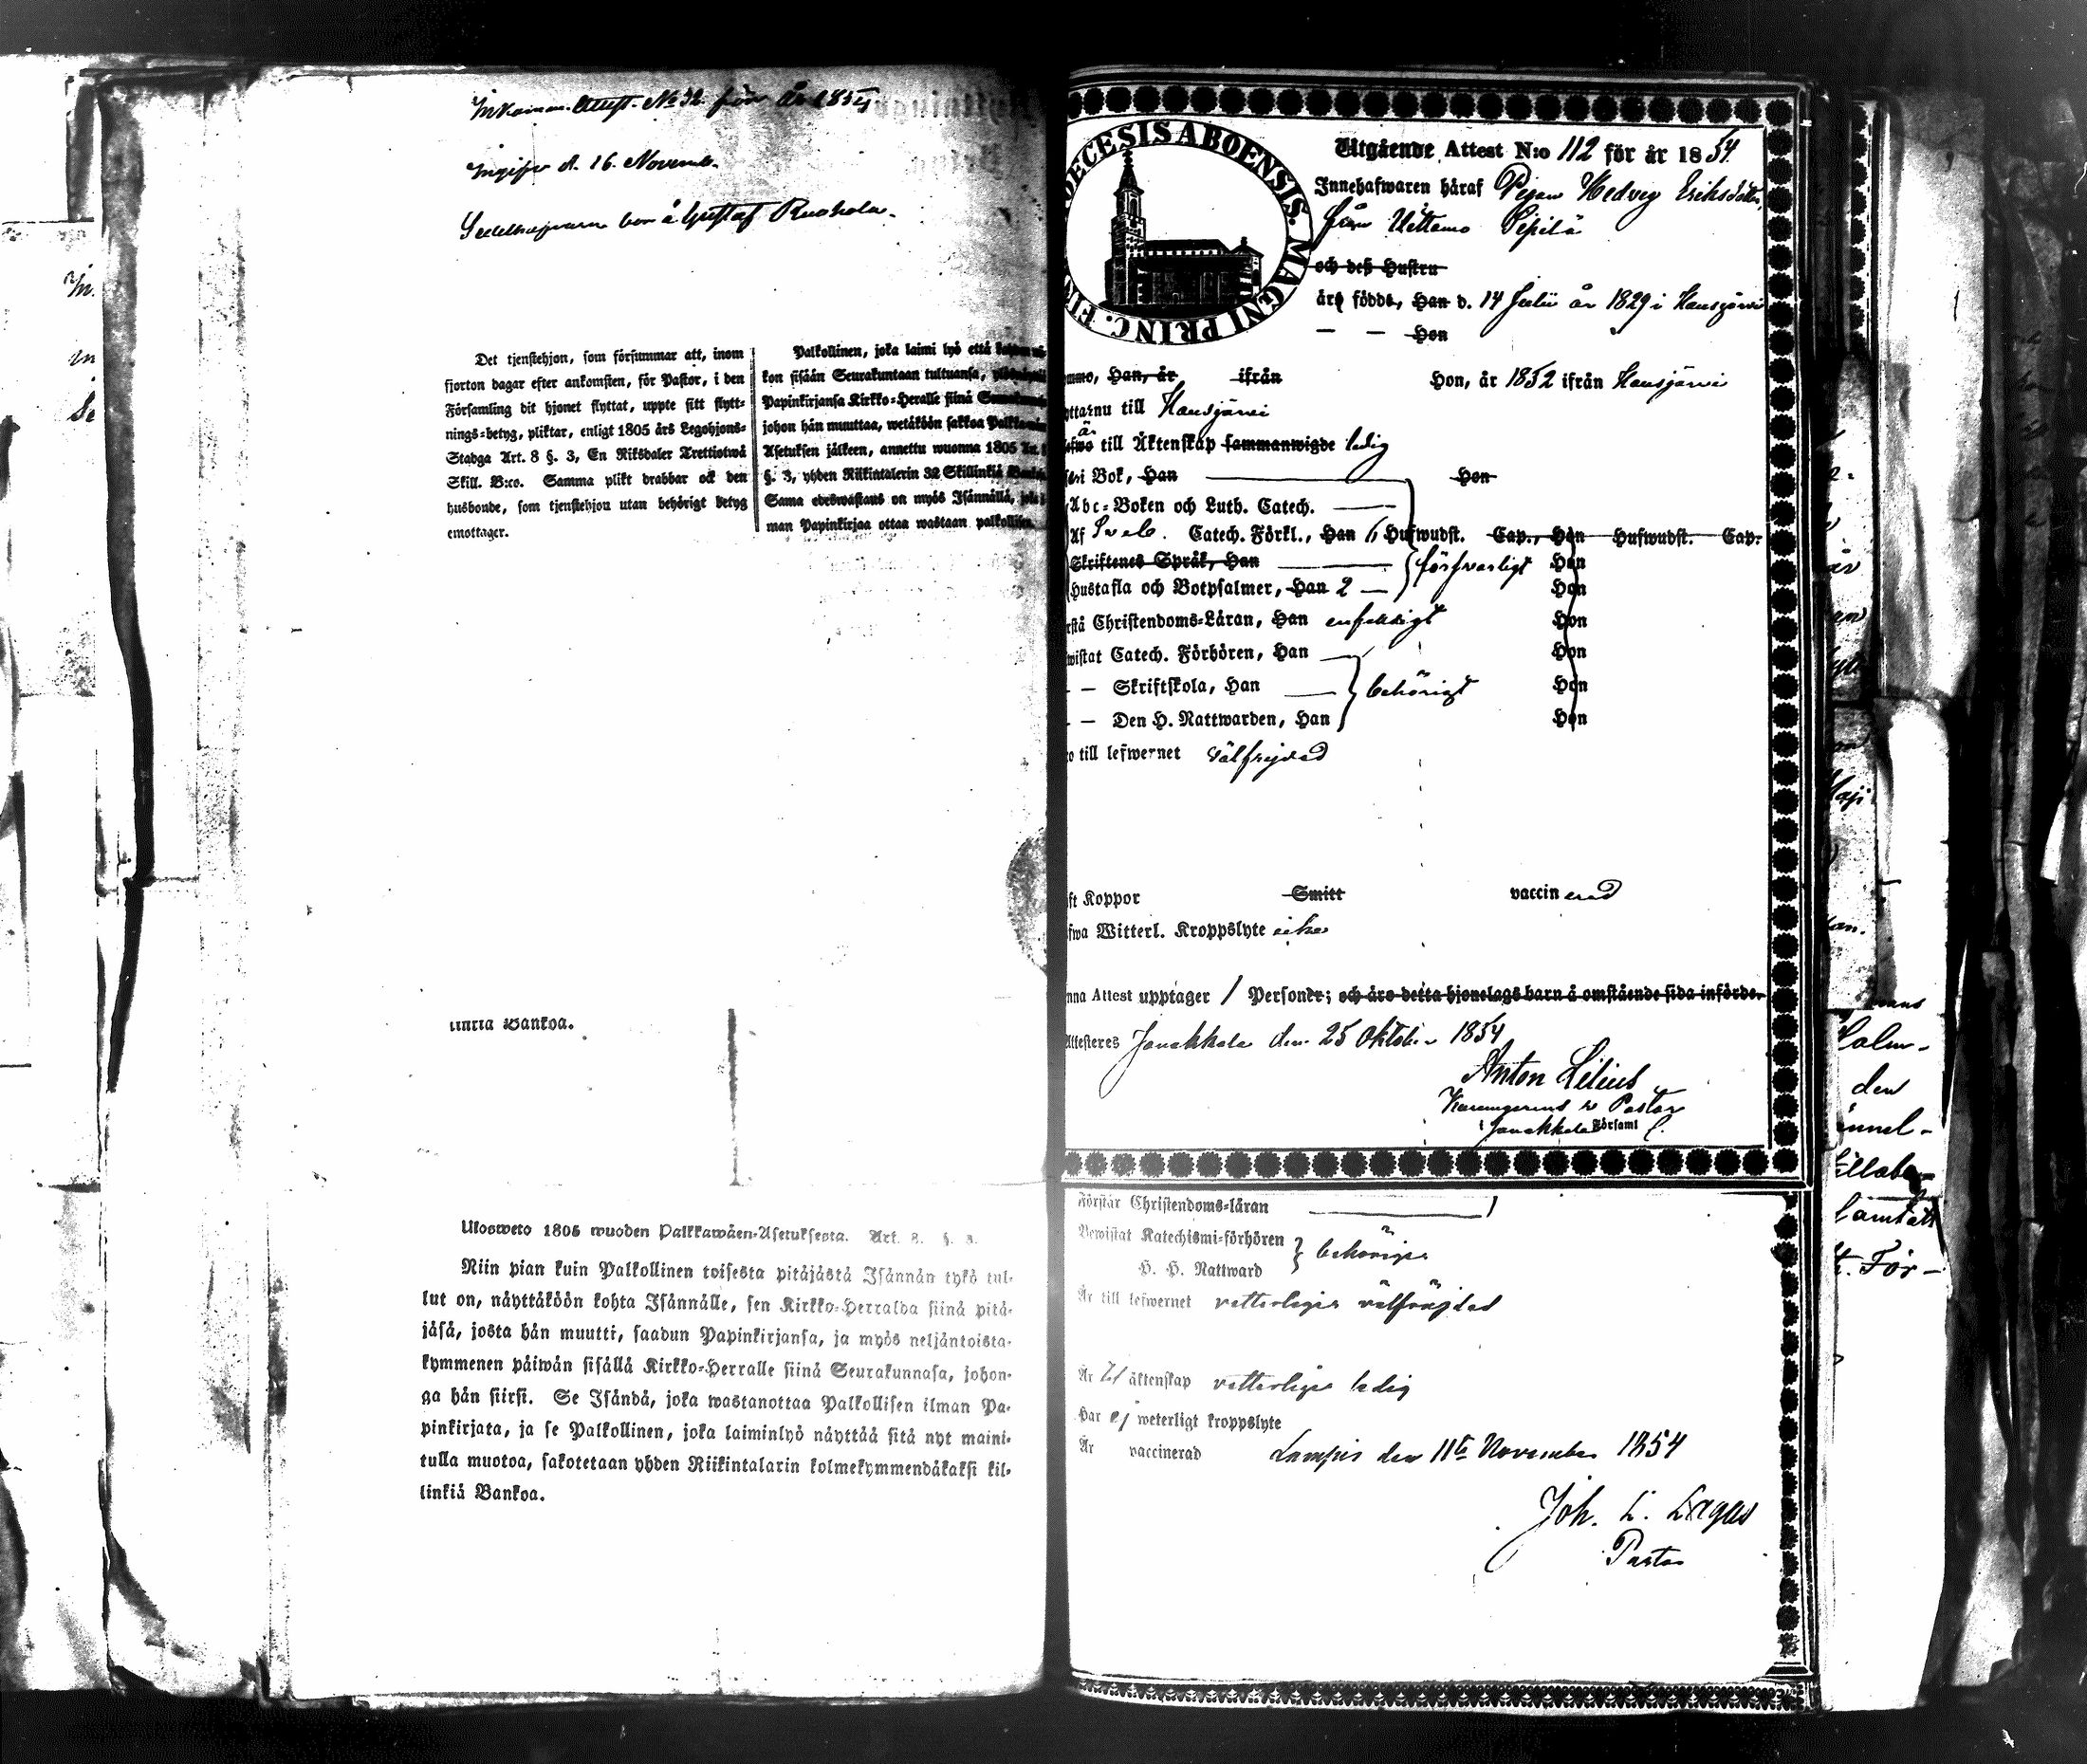 Inkomm. Attest. No 32 för år 1854
d. 16 Novemb.
bor å Gustaf Ruohola.
Det tjenstehjon, som försummar att, inom
fjorton dagar efter ankomsten, för Pastor, i den
Församling dit hjonet flyttat, uppte sitt flytt-
nings-betyg, pliktar, enligt 1805 års Legohjons-
Stadga Art. 8 §. 3, En Riksdaler Trettiotwå
Skill. B:co. Samma plikt drabbar ock den
husbonde, som tjenstehjon utan behörigt betyg
emottager.
Palkollinen, joka laimi lyö että
kon sisään Seurakuntaan tultuansa,
Papinkirjansa Kirkko-Heralle siinä
johon hän muuttaa, wetäköön sakkoa
Asetuksen jälkeen, annettu wuonna 1805 Art.
§. 3, yhden Riikintalerin 32 Skillinkiä
Sama edeswastaus on myös Isännällä,
man Papinkirjaa ottaa wastaan palkollisen.
linkiä Bankoa.
Ulosweto 1805 wuoden Palkkawäen-Asetuksesta. Art. 8. §. 3.
Niin pian kuin Palkollinen toisesta pitäjästä Isännän tykö tul-
lut on, näyttäköön kohta Isännälle, sen Kirkko-Herralda siinä pitä-
jäsä, josta hän muutti, saadun Papinkirjansa, ja myös neljäntoista-
kymmenen päiwän sisällä Kirkko-Herralle siinä Seurakunnasa, johon-
ga hän siirsi. Se Isändä, joka wastanottaa Palkollisen ilman Pa-
pinkirjata, ja se Palkollinen, joka laiminlyö näyttää sitä nyt maini-
tulla muotoa, sakotetaan yhden Riikintalarin kolmekymmendäkaksi kil-
linkiä Bankoa.
DECESIS ABOENSIS. MAGNI PRINC. FIN
Utgående Attest N:o 112 för år 1854
Innehafwaren häraf Pigan Hedvig Eriksdotter,
från Uttamo Sipilä
och deß Hustru
är födde, Han d. 14 Julii år 1829 i Hausjärvi
— — Hon
Han, år ifrån Hon, år 1852 ifrån Hausjärvi
nu till Hausjärvi
är till Äktenskap sammanwigde ledig
Bok, Han Hon
Abc-Boken och Luth. Catech.
Af Sveb. Catech. Förkl., Han 6 Hufwudst. Cap., Hon Hufwudst. Cap.
Skriftenes Språk, Han försvarligt Hon
Hustafla och Botpsalmer, Han 2 Hon
Christendoms-Läran, Han enfaldigt Hon
wistat Catech. Förhören, Han Hon
— Skriftskola, Han behörigt Hon
— Den H. Nattwarden, Han Hon
till lefwernet välfrejdad
Koppor Smitt vaccinerad
Witterl. Kroppslyte icke
Attest upptager 1 Personer; och äro detta hjonelags barn å omstående sida införde
Attesteres Janakkala den 25 Oktober 1854
Anton Lilius
Pastor
i Janakkala Församl.
Förstår Christendoms-läran
Bewistat Katechismi-förhören
behörigen
H. H. Nattward
Är till lefwernet vetterligen välfräjdad
Är til äktenskap vetterligen ledig
Har ej weterligt kroppslyte
Är vaccinerad Lampis den 11te November 1854
Joh. L. Lagus
Pastor
Holm-
den